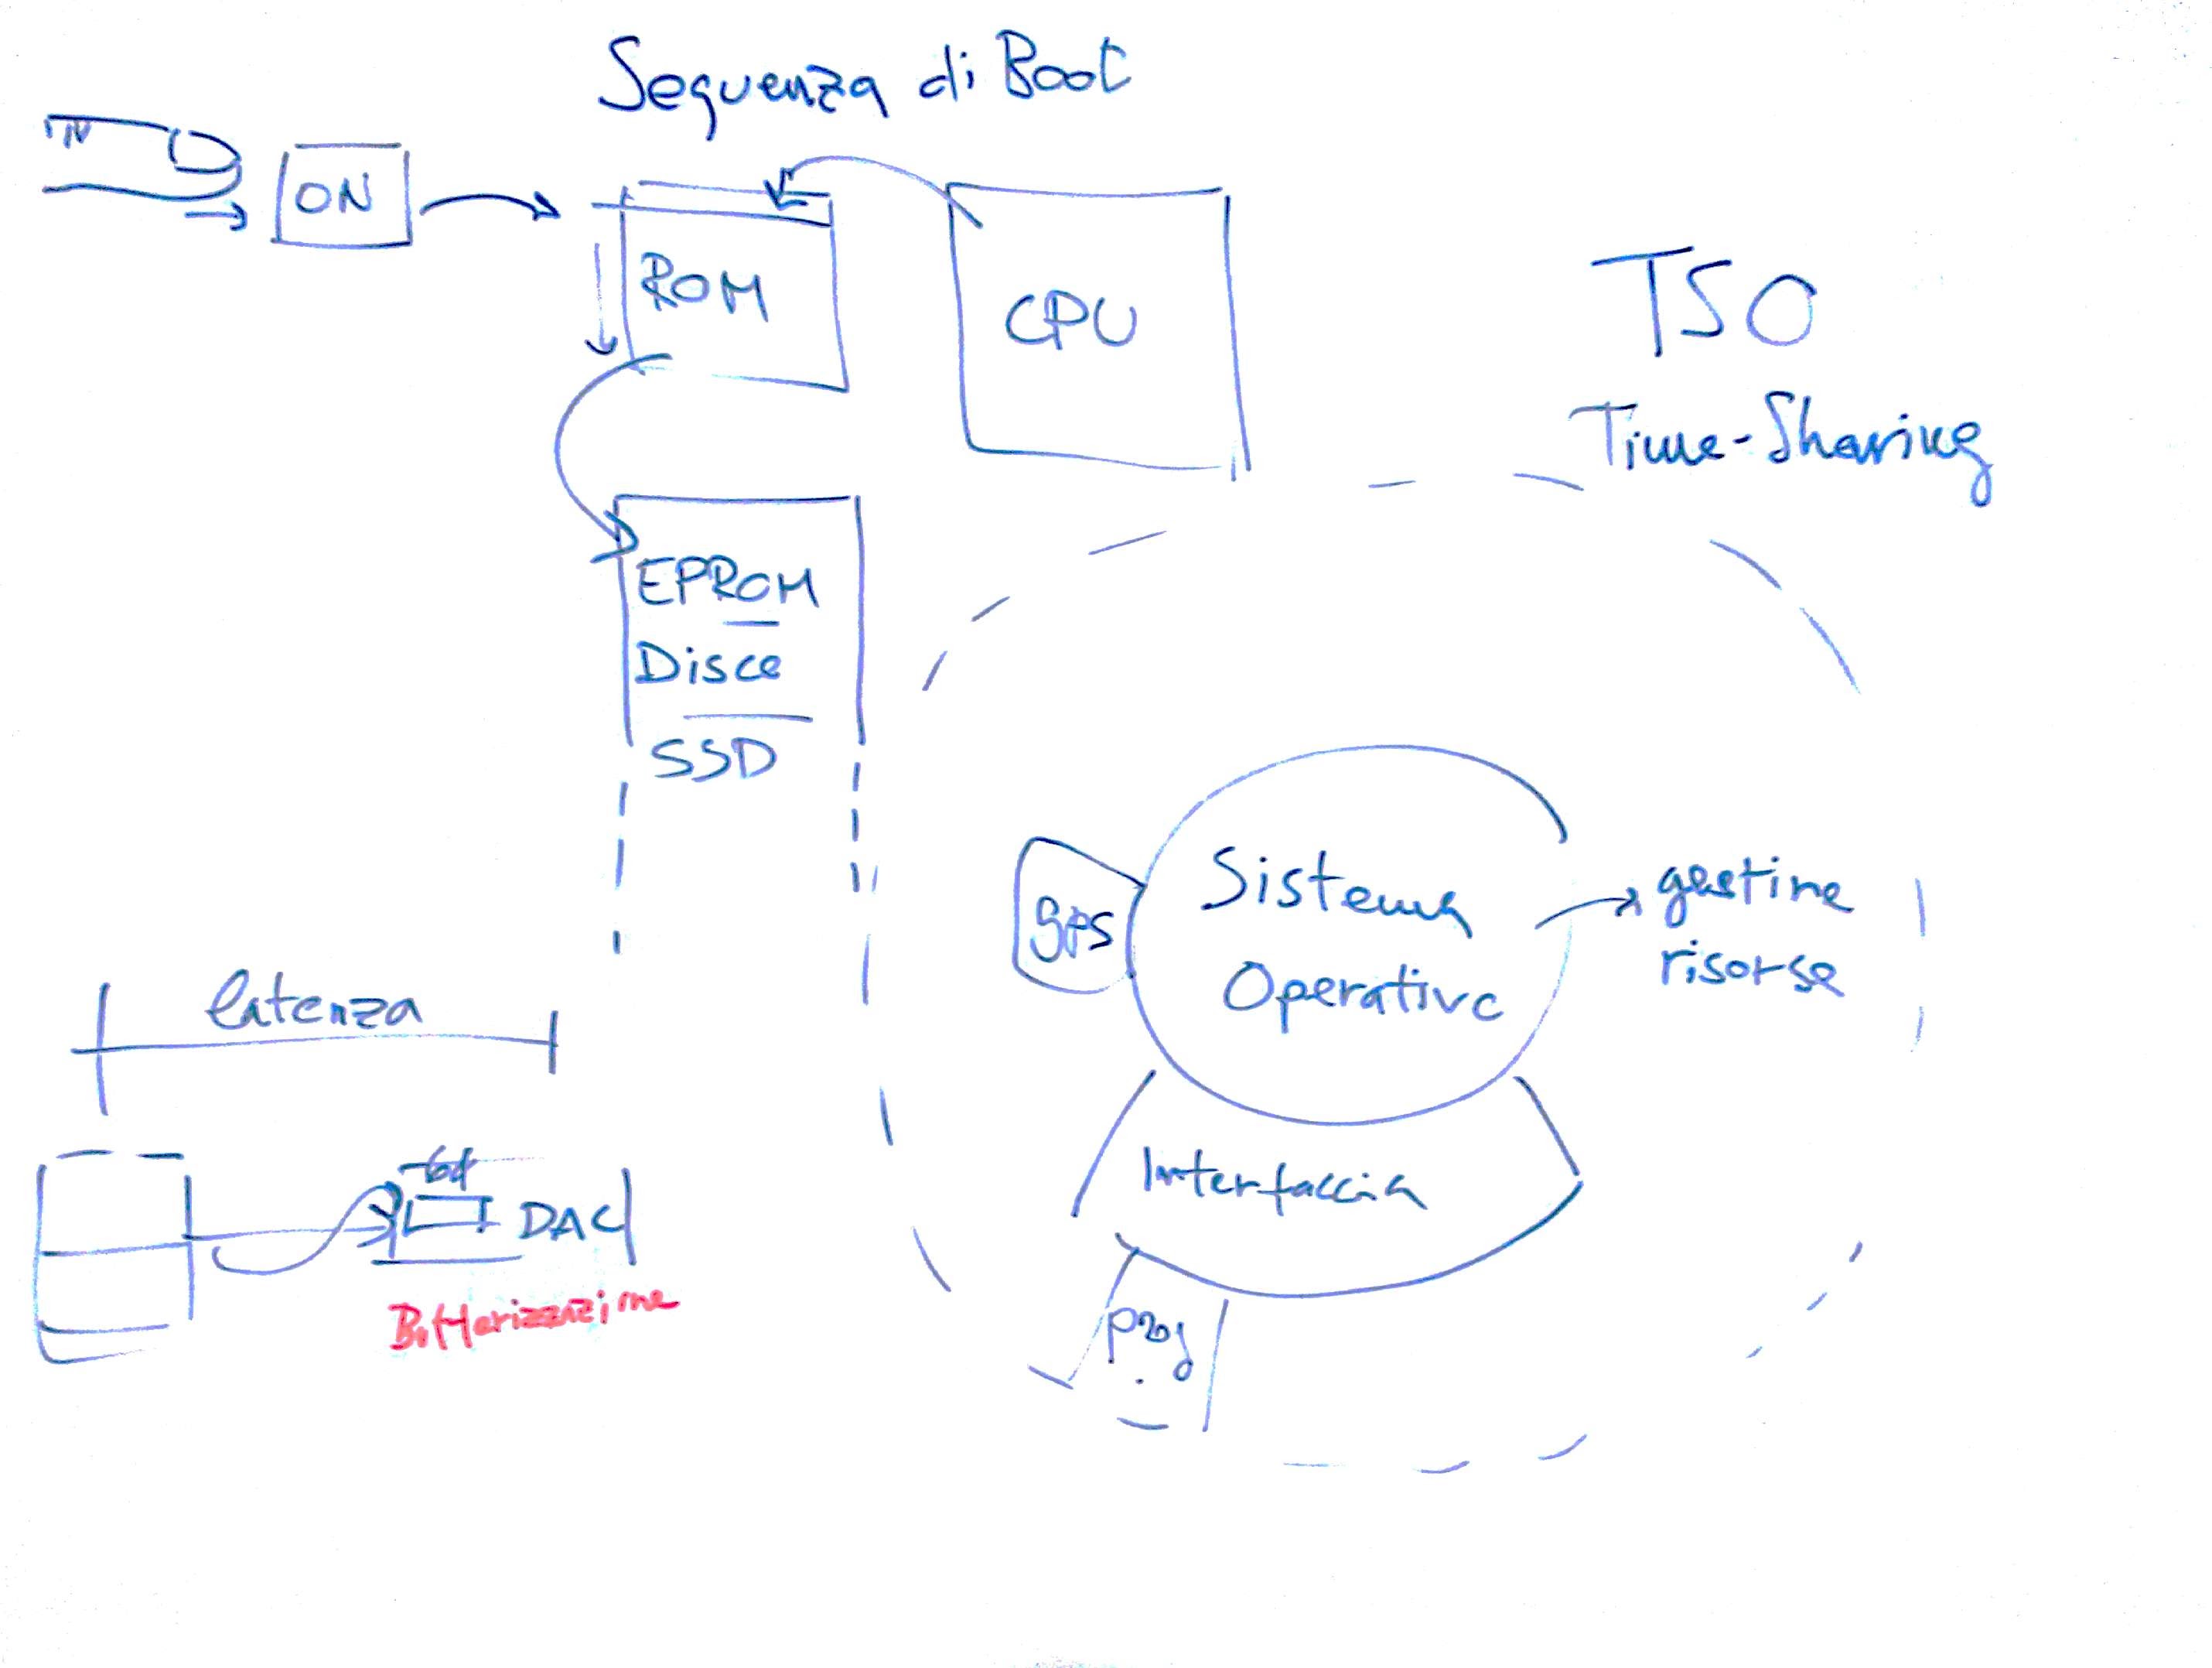 Sequenza di Boot
ON
ROM
CPU
TSO
Time-Sharing
EPROM
Disco
SSD
GPS
Sistema
Operativo
gestione
risorse
latenza
64
DAC
Interfaccia
Bufferizzazione
prog